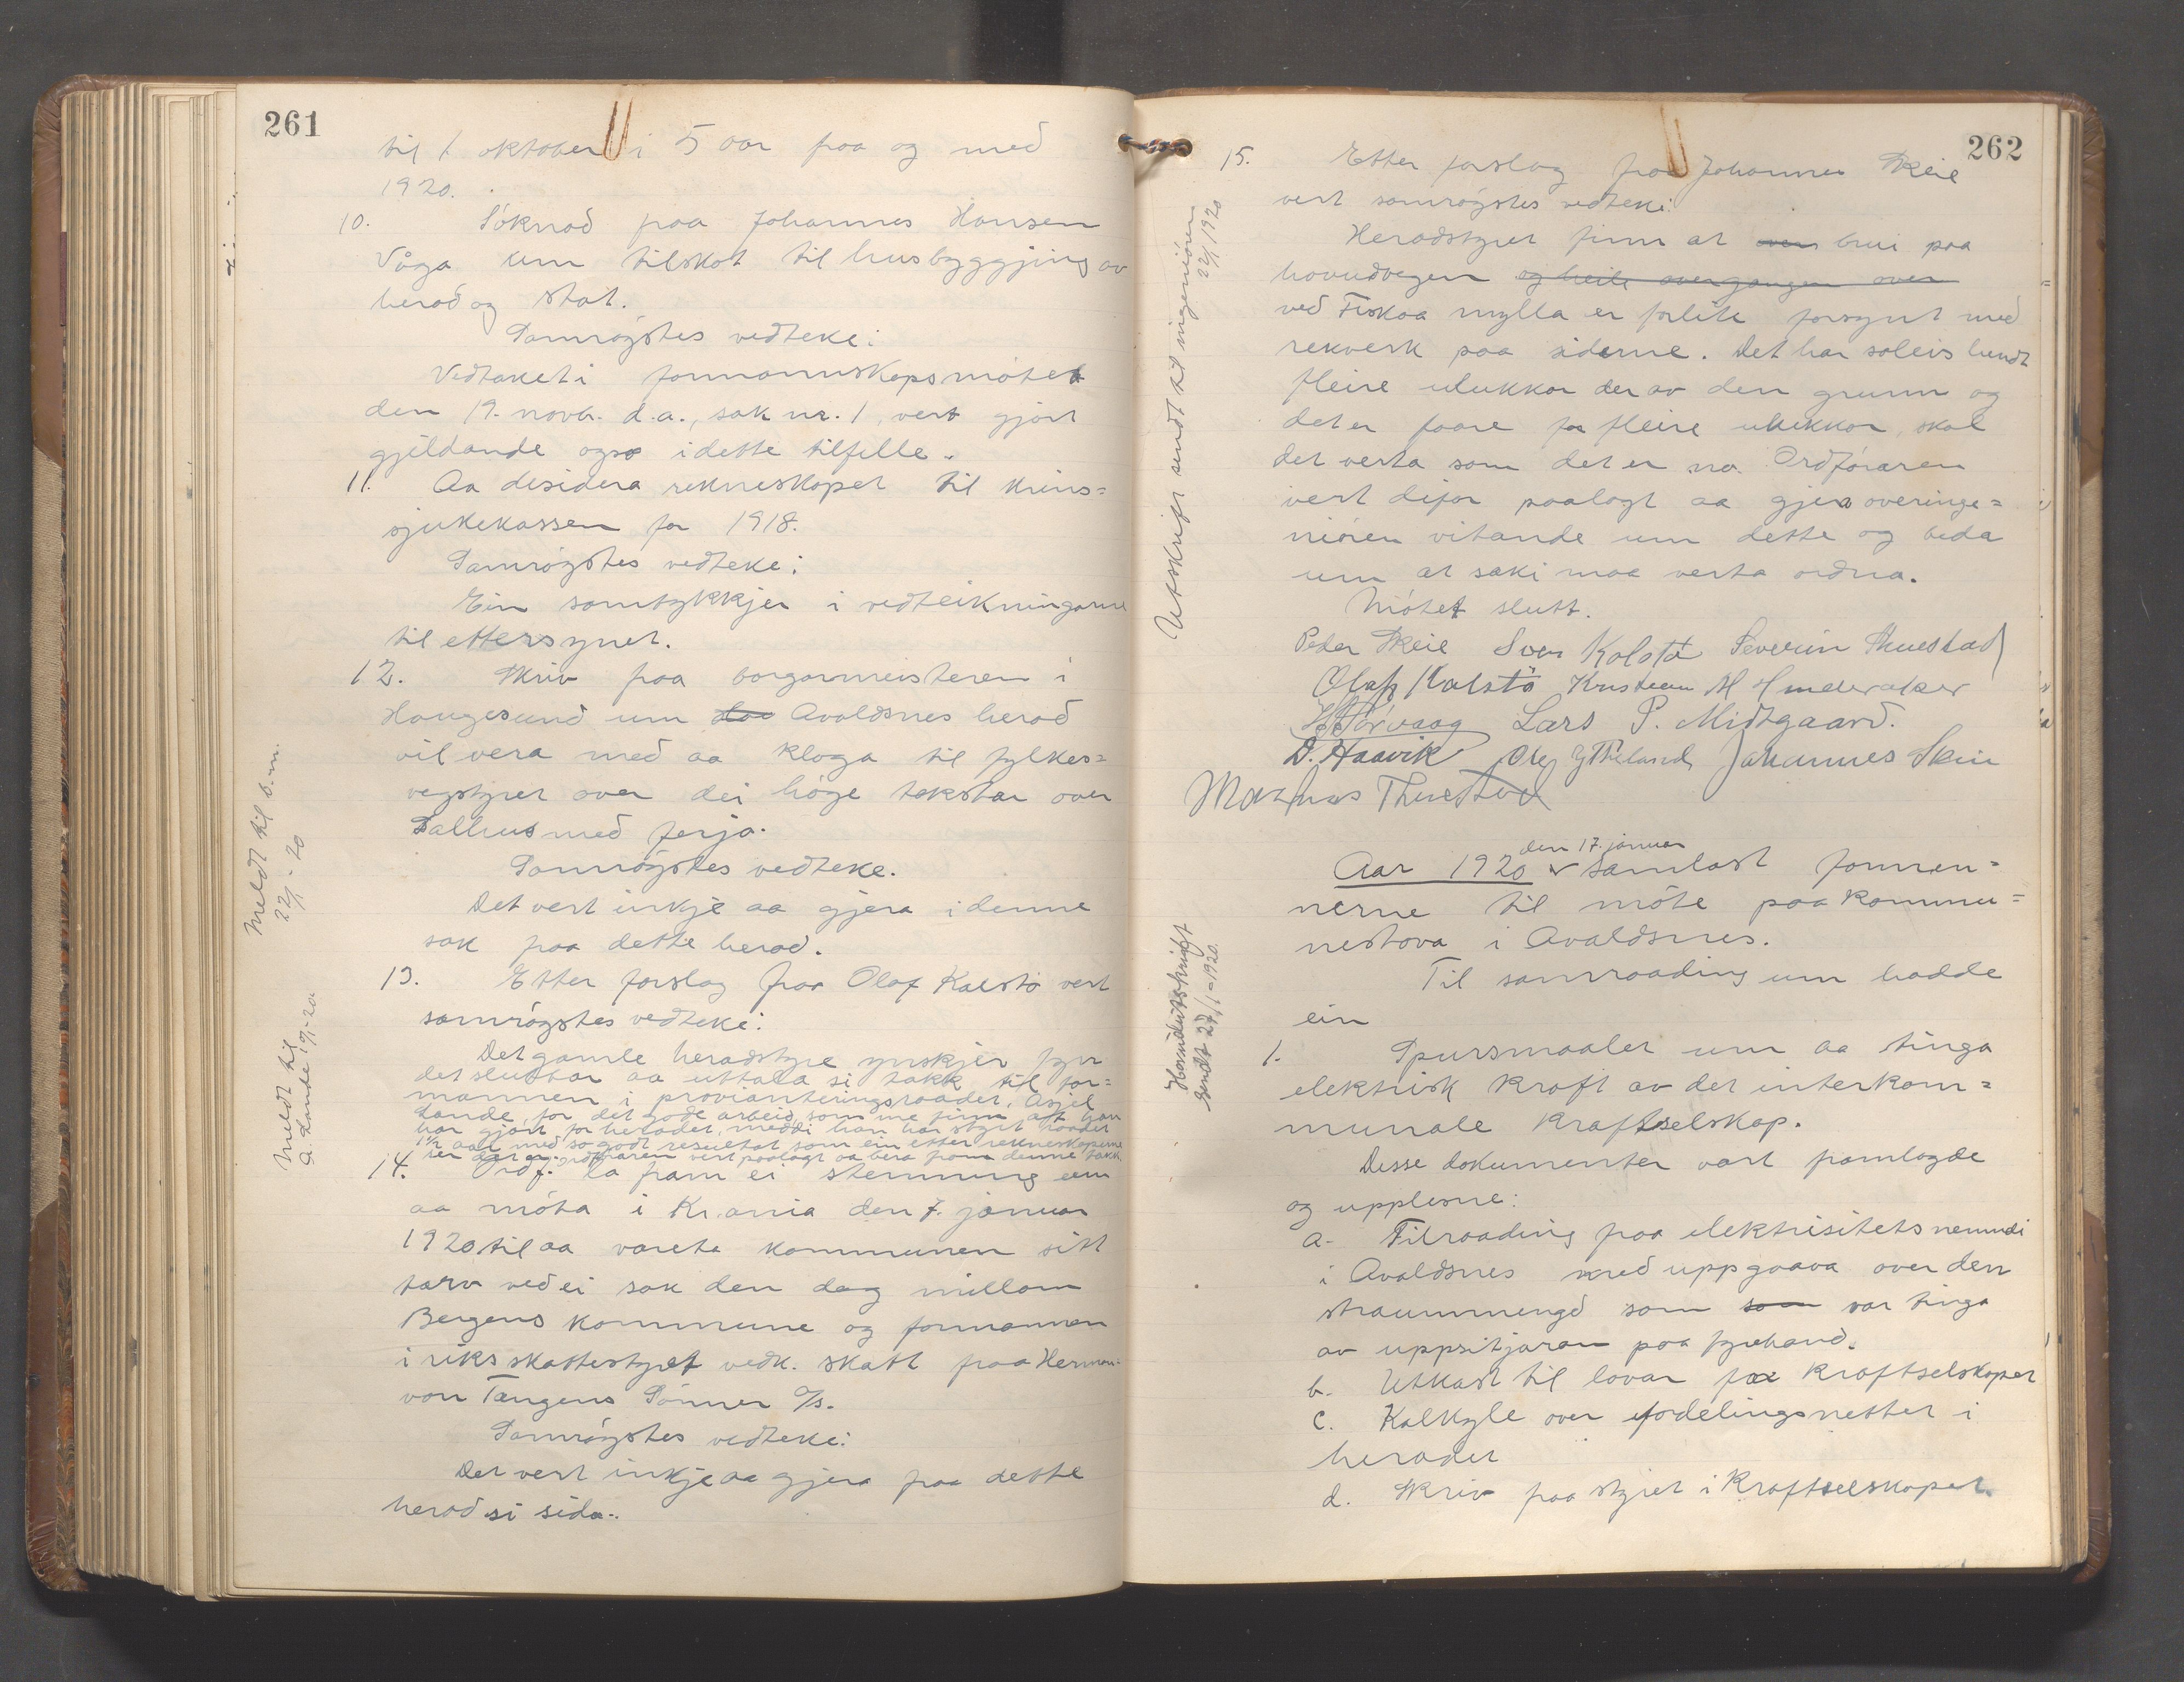 261
til 1 oktober i 5 aar fraa og med
1920.
10. Söknad fraa Johannes Hansen
Våga um tilskot til husbyggjing av
herad og stat.
Samröystes vedteke:
Vedtaket i formannskapsmötet
den 19. novbr. d.a., sak nr. 1, vert gjort
gjeldande ogso i dette tilfelle.
11. Aa desidera rekneskapet til krins=
sjukekassen for 1918.
Samröystes vedteke:
Ein samtykkjer i vedteikningarne
til ettersynet.
12. Skriv fraa borgarmeisteren i
Haugesund um Avaldsnes herad
vil vera med aa klaga til fylkes=
vegstyret over dei höge takstar over
Salhus med ferja.
Samröystes vedteke.
Det vert inkje aa gjera i denne
sak fraa dette herad.
13. Etter forslag fraa Olaf Kalstö vert
samröystes vedteke:
Det gamle heradstyre ynskjer fyrr
det sluttar aa uttala si takk til for=
mannen i provianteringsraadet, Asjel
Lande, for det gode arbeid som me finn att han
har gjort for heradet, medi han har styrt raadet
1½ aar med so godt resultat som ein etter rekneskaperne
ser det er. Ordföraren vert paalagt aa bera fram denne takk
14. Ordf. la fram ei stemning um
aa möta i Kr.ania den 7. januar
1920 til aa vareta kommunen sitt
tarv ved ei sak den dag millom
Bergens kommune og formannen
i riksskattestyret vedk. skatt fraa Herman
von Tangens Sönner A/s.
Samröystes vedteke:
Det vert inkje aa gjera fraa dette
herad si sida.
Meldt til b.m.
22/1-20
Meldt til
A. Lande 19/1-20
262
15. Etter forslag fraa Johannes Skeie
vert samröystes vedteke:
Heradstyret finn at over brui paa
hovudvegen og heile overgangen over
ved Fiskaa mylla er forlite forsynt med
rekverk paa siderne. Det har soleis hendt
fleire ulukkor der av den grunn og
det er faare for fleire ulukkor, skal
det verta som det er no. Ordföraren
vert difor paalagt aa gjera overinge=
niören vitande um dette og beda
um at saki maa verta ordna.
Mötet slutt.
Peder Skeie Sven Kolstø Severin Thuestad
Olaf Kalstö Kristian M Hinderaker
H. Førvaag Lars P. Midtgaard.
D. Haavik Ole G Theland Johannes Skeie
Magnus Thuestad
Utskrift sendt til ingeniören
22/1 1920
den 17. januar
Aar 1920 v samlast formen=
nerne til möte paa kommu=
nestova i Avaldsnes.
Til samraading um hadde
ein
1. Spursmaalet um aa tinga
elektrisk kraft av det interkom=
munale Kraftselskap.
Desse dokumenter vart framlagde
og upplesne:
a- Tilraading fraa elektrisitetsnemndi
i Avaldsnes med uppgaava over den
straummengd som som var tinga
av uppsitjarar paa fyrehand.
b. Utkast til lovar for Kraftselskapet
c. Kalkyle over fordelingsnettet i
heradet
d. Skriv fraa styret i Kraftselskapet.
Hovudutskrift
sendt 27/1-1920.